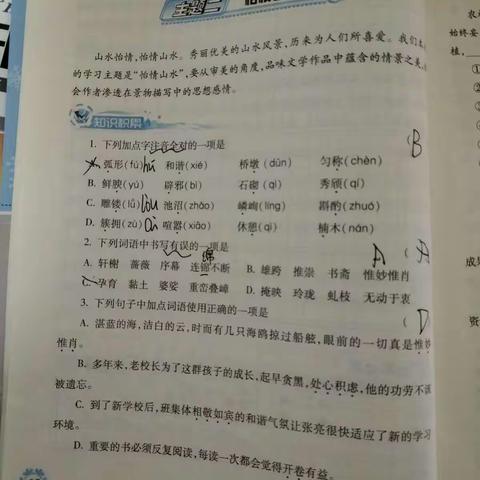 主题二
山水怡情,怡情山水。秀丽优美的山水风景,历来为人们所喜爱。我们本
的学习主题是“怡情山水”,要从审美的角度,品味文学作品中蕴含的情景之美,
会作者渗透在景物描写中的思想感情。
知识积累
1. 下列加点字注音全对的一项是 ( B
A. 弧形(fú) hú 和谐(xié) 桥墩(dūn) 匀称(chèn)
B. 鲜腴(yú) 辟邪(bì) 石磡(qì) 秀颀(qí)
C. 雕镂(lǚ) lòu 池沼(zhǎo) 嶙峋(líng) 斟酌(zhuó)
D. 簇拥(zù) cù 喧嚣(xiāo) 休憩(qì) 楠木(nán)
2. 下列词语中书写有误的一项是 ( A
A. 轩榭 蔷薇 序幕 连锦不断 绵 B. 雄跨 推崇 书斋 惟妙惟肖
C. 孕育 黏土 婆娑 重峦叠嶂 D. 掩映 玲珑 虬枝 无动于衷
3. 下列句子中加点词语使用正确的一项是 ( D
A. 湛蓝的海,洁白的云,时而有几只海鸥掠过船舷,眼前的一切真是惟妙
惟肖。
B. 多年来,老校长为了这群孩子的成长,起早贪黑,处心积虑,他的功劳不
被遗忘。
C. 到了新学校后,班集体相敬如宾的和谐气氛让张亮很快适应了新的学习
环境。
D. 重要的书必须反复阅读,每读一次都会觉得开卷有益。
农
始终妥
植,
①
②
③
④
成果
资